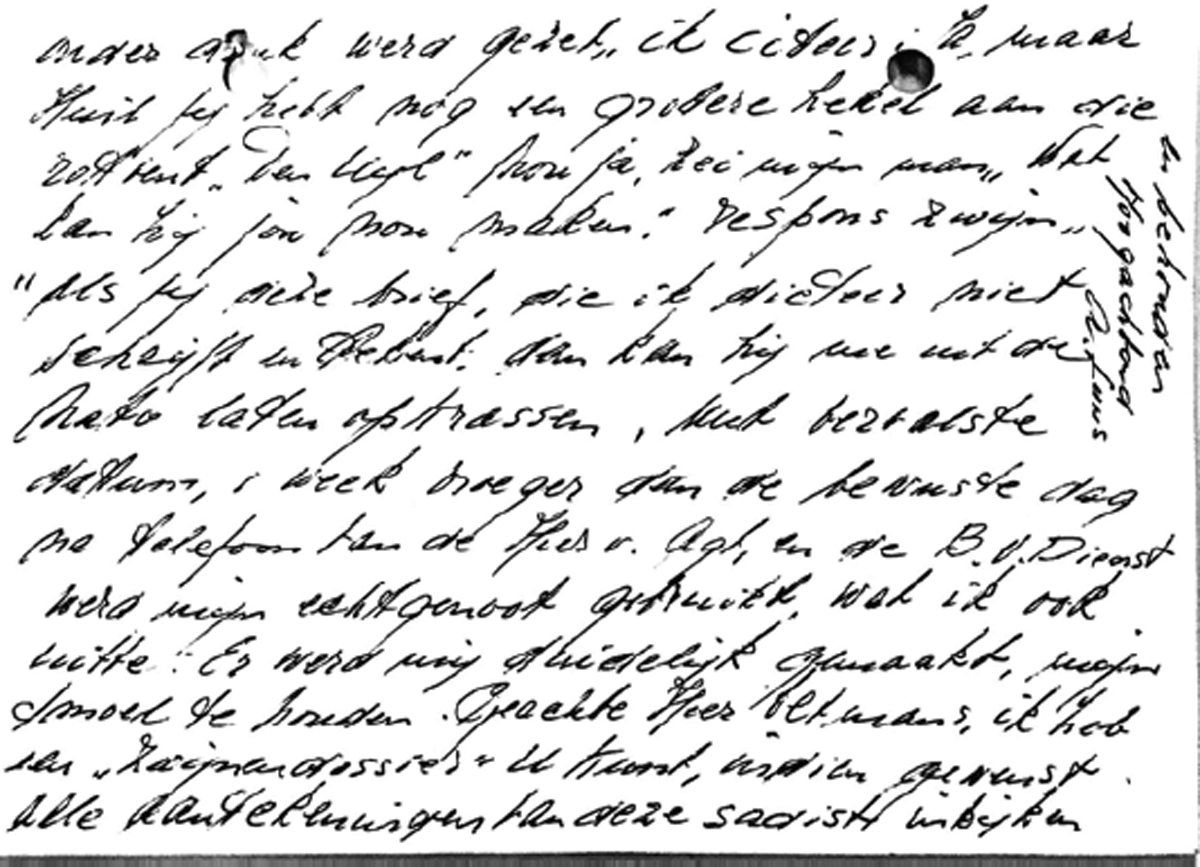 onder druk werd gezet, „ik citeer: Ja, maar
Huib jij hebt nog een grotere hekel aan die
rotvent „den Uyl" nou ja, zei mijn man „Wat
kan hij jou nou maken." respons zwijn „
"Als jij deze brief, die ik dicteer niet
schrijft en tekent. dan kan hij me uit de
Nato laten optrassen, Met vervalste
datum, 1 week vroeger dan de bewuste dag
na telefoon van de Heer v. Agt, en de B.V.Dienst
werd mijn echtgenoot gebruikt, wat ik ook
uitte. Er werd mij duidelijk gemaakt, mijn
smoel te houden. Geachte Heer Oltmans, ik heb
een „zwijnendossier" U kunt, indien gewenst.
alle aantekeningen van deze sadist inkijken
en behouden
Hoogachtend